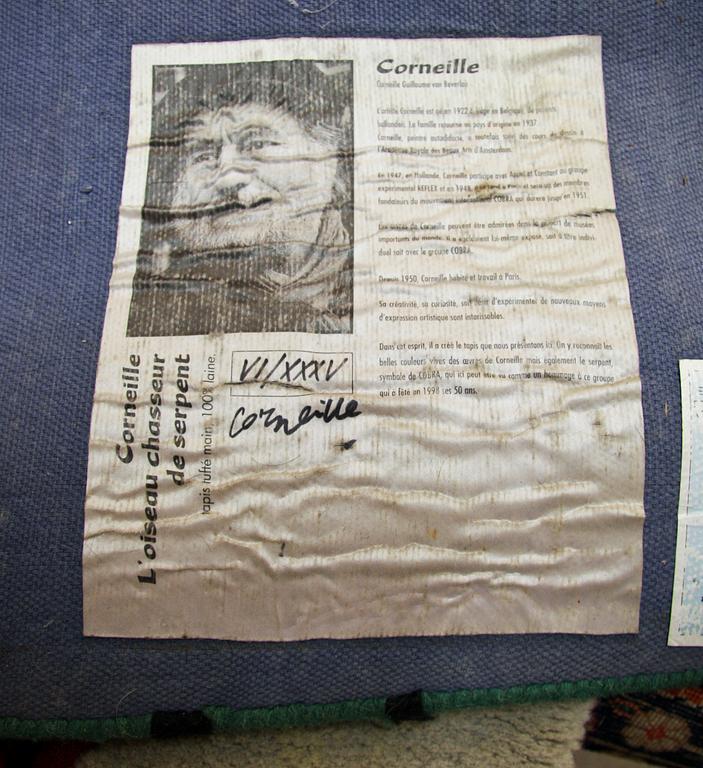 Corneille
Corneille Guillaume van Beverloo
L'artiste Corneille est né en 1922 à Liège en Belgique, de parents
hollandais. La famille retourne au pays d'origine en 1937.
Corneille, peintre autodidacte, a toutefois suivi des cours de dessin à
l'Académie Royale des Beaux Arts d'Amsterdam.
En 1947, en Hollande, Corneille participe avec Appel et Constant au groupe
expérimental REFLEX et en 1948, à Paris et sera un des membres
fondateurs du mouvement international COBRA qui durera jusqu'en 1951.
Les œuvres de Corneille peuvent être admirées dans la plupart de musées
importants du monde. Il a également lui-même exposé, soit à titre indivi-
duel soit avec le groupe COBRA.
Depuis 1950, Corneille habite et travail à Paris.
Sa créativité, sa curiosité, son désir d'expérimenter de nouveaux moyens
d'expression artistique sont intarissables.
Dans cet esprit, il a créé le tapis que nous présentons ici. On y reconnaît les
belles couleurs vives des œuvres de Corneille mais également le serpent,
symbole de COBRA, qui ici peut être vu comme un hommage à ce groupe
qui a fêté en 1998 ses 50 ans.
Corneille
L'oiseau chasseur
de serpent
tapis tufté main, 100% laine.
VI/XXXV
Corneille